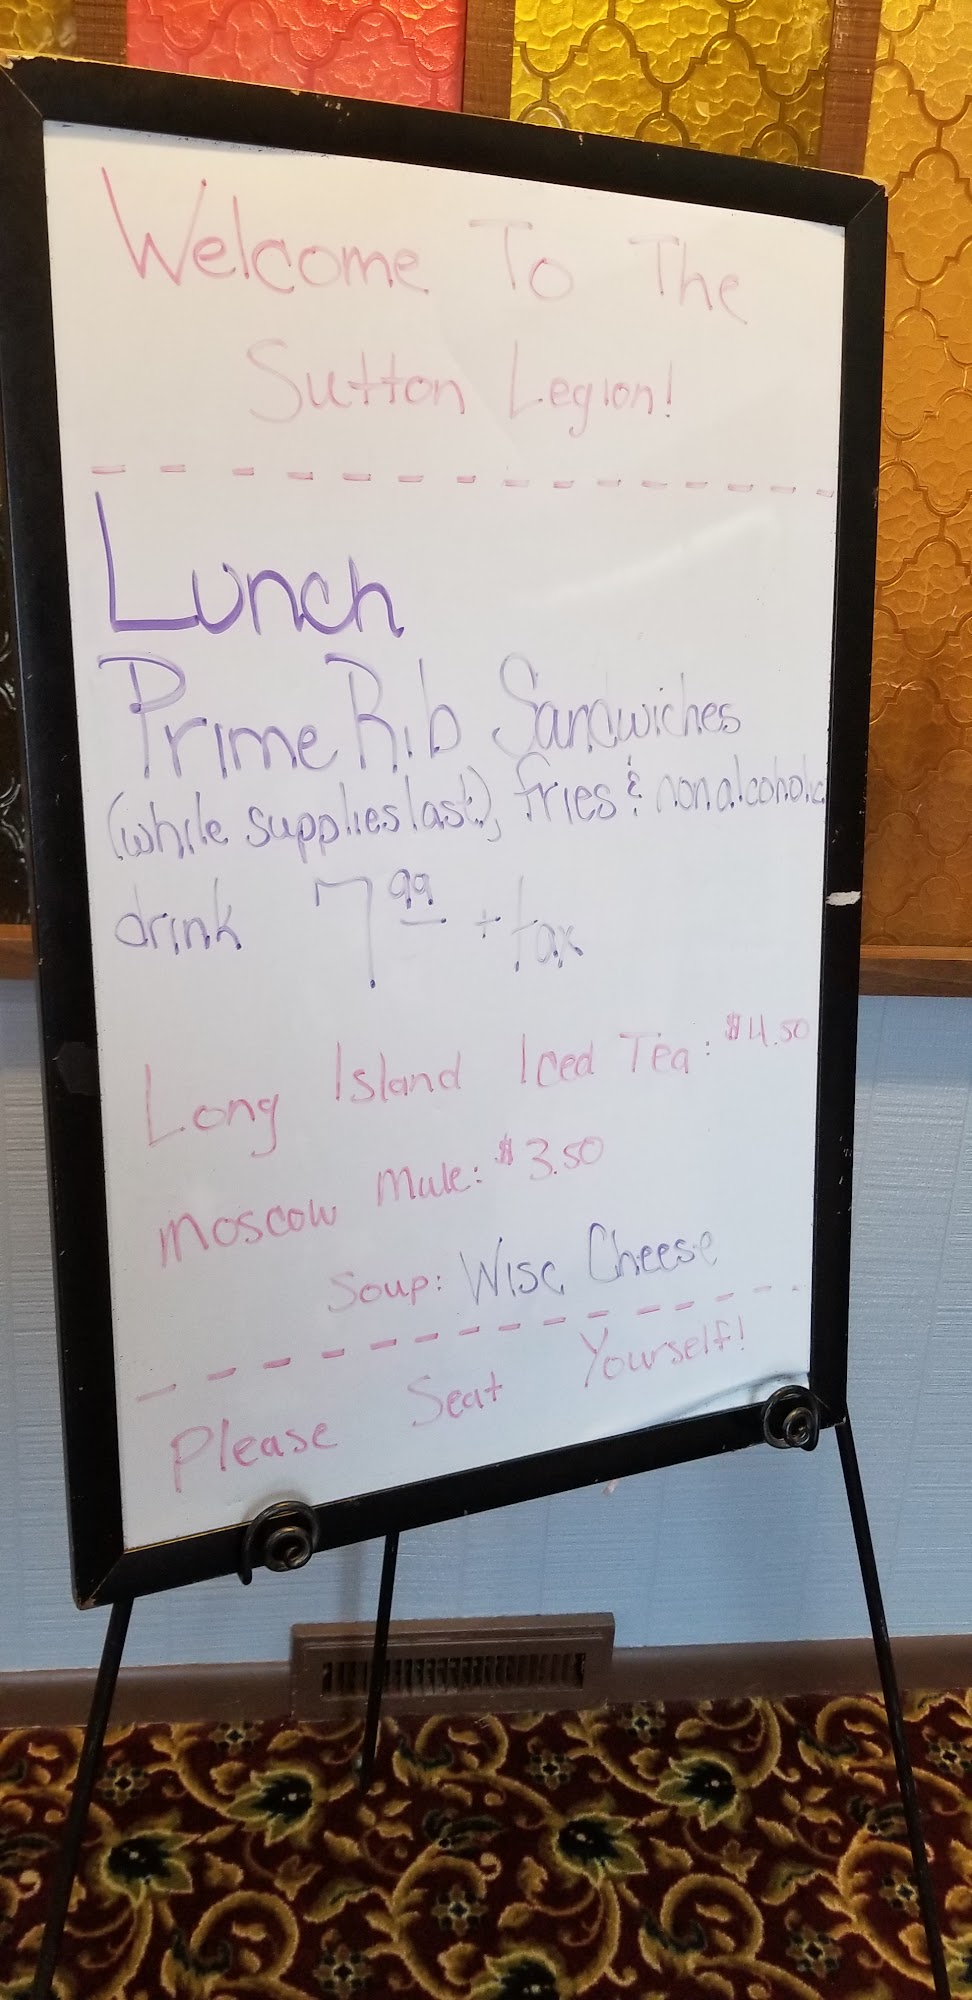 Welcome To The
Sutton Legion!
Lunch
Prime Rib Sandwiches
(while supplies last), fries & nonalcoholic
drink 7.99 + tax
Long Island Iced Tea: $4.50
Moscow Mule: $3.50
Soup: Wisc Cheese
Please Seat Yourself!